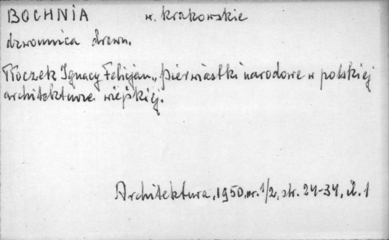 BOCHNIA w. krakowskie
dzwonnica drewn.
Tłoczek Ignacy Felicjan., Pierwiastki narodowe w polskiej
architekturze wiejskiej.
Architektura, 1950, nr. 1/2, str. 24-34, il. 1